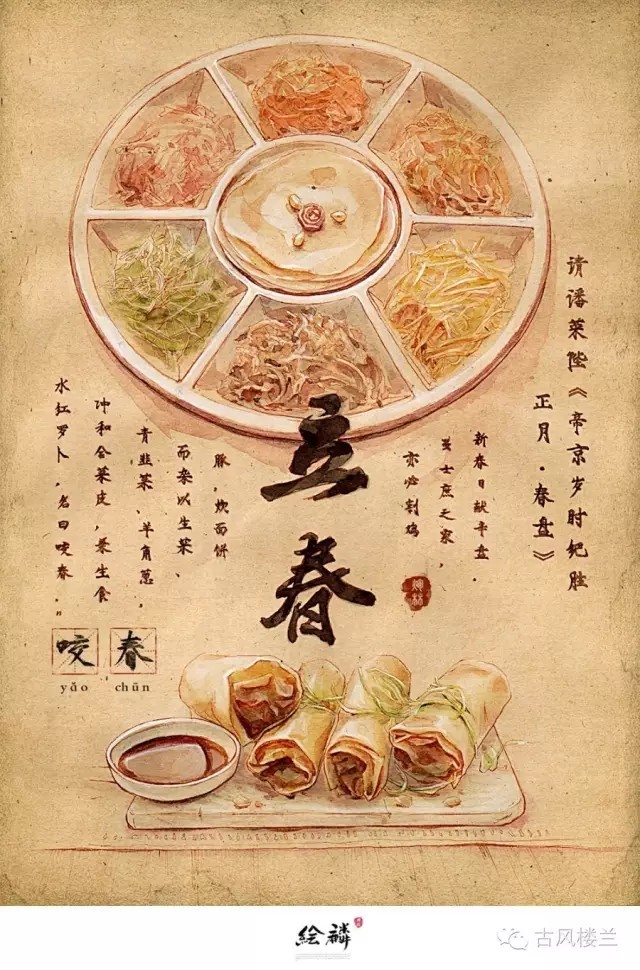 请潘荣陛《帝京岁时纪胜
正月·春盘》
新春日献辛盘。
虽士庶之家，
亦必割鸡
立春
豚，炊面饼
而杂以生菜、
青韭菜、羊角葱，
冲和合菜皮，兼生食
水红萝卜，名曰咬春。”
咬春
yǎo chūn
絵麟
古风楼兰